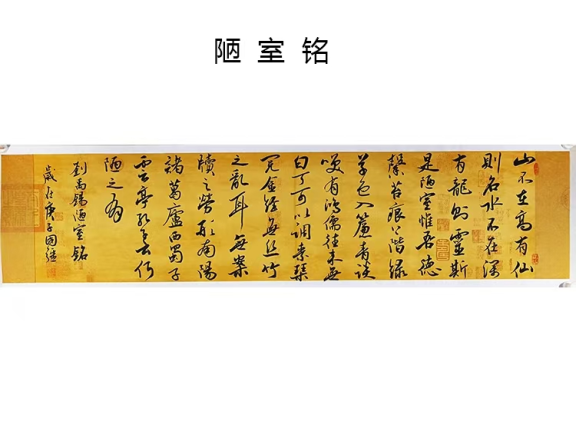 陋室铭
山不在高有仙
則名水不在深
有龍則靈斯
是陋室惟吾德
馨苔痕上階綠
草色入簾青談
笑有鴻儒往来無
白丁可以調素琴
閱金經無絲竹
之亂耳無案
牘之勞形南陽
諸葛廬西蜀子
雲亭孔子云何
陋之有
劉禹錫陋室銘
歲次庚子國